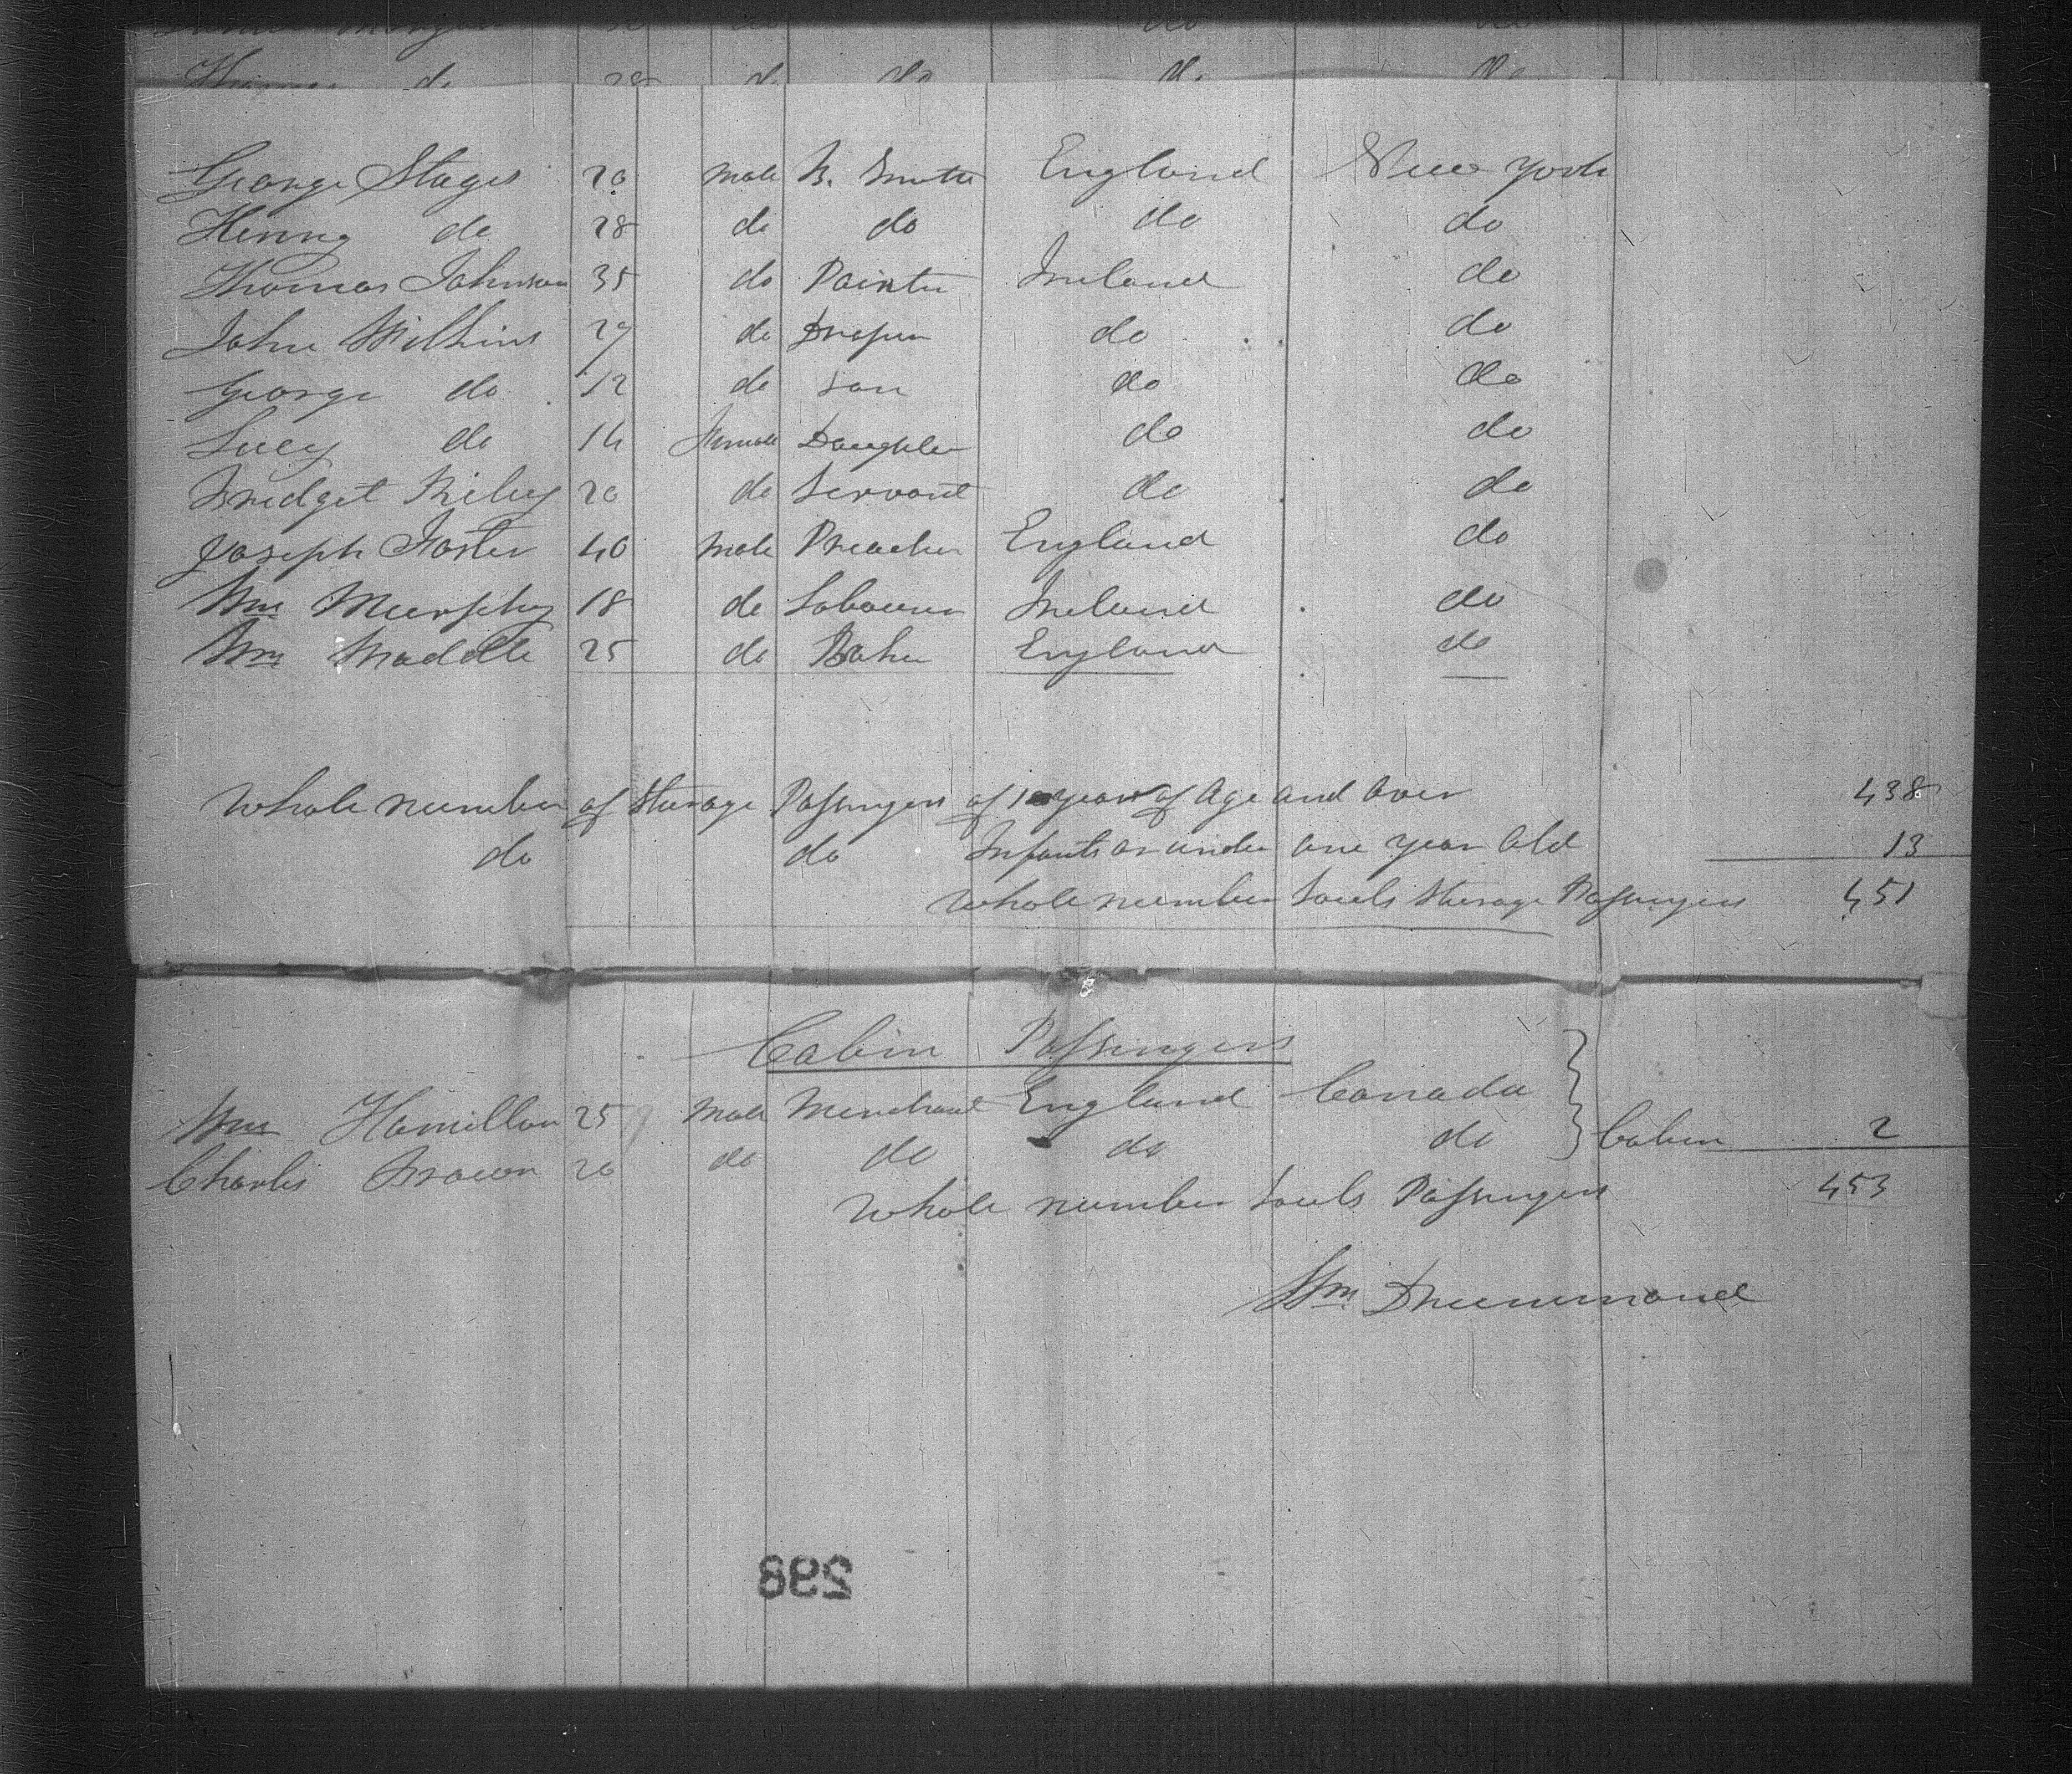 do do
Thomas do 28 do do do do
George Stages 20 Male B. Smith England New York
Henry do 28 do do do do
Thomas Johnson 35 do Painter Ireland do
John Wilkins 29 do Draper do do
George do 12 do Son do do
Lucy do 14 Female Daughter do do
Bridget Riley 20 do Servant do do
Joseph Foster 40 Male Preacher England do
Wm Murphy 18 do Labourer Ireland do
Wm 25 do Baker England do
Whole number of Sterage Passengers of 1 year of Age and Over 438
do do Infants or under one year Old 13
Whole number Souls Sterage Passengers 451
Cabin Passengers
Wm Hamilton 25 Male Merchant England Canada
Charles Brown 20 do do do do } Cabin 2
Whole number Souls Passengers 453
Wm Drummond
298